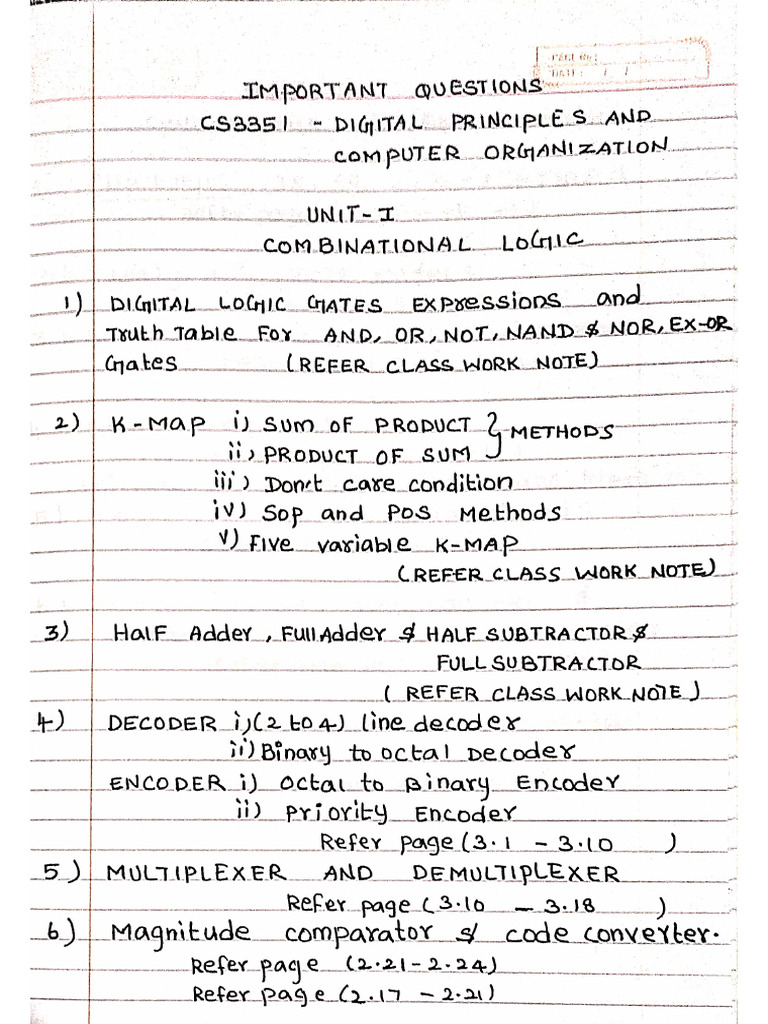 PAGE No:
DATE: / /
IMPORTANT QUESTIONS
CS3351 - DIGITAL PRINCIPLES AND
COMPUTER ORGANIZATION
UNIT-I
COMBINATIONAL LOGIC
1) DIGITAL LOGIC GATES Expressions and
Truth Table For AND, OR, NOT, NAND & NOR, EX-OR
Gates (REFER CLASS WORK NOTE)
2) K-Map i) Sum OF PRODUCT } METHODS
ii) PRODUCT OF SUM
iii) Don't care condition
iv) Sop and POS Methods
v) Five variable K-MAP
(REFER CLASS WORK NOTE)
3) Half Adder, Full Adder & HALF SUBTRACTOR &
FULL SUBTRACTOR
( REFER CLASS WORK NOTE )
4) DECODER i) (2 to 4) line decoder
ii) Binary to octal Decoder
ENCODER i) Octal to Binary Encoder
ii) Priority Encoder
Refer page (3.1 - 3.10 )
5) MULTIPLEXER AND DEMULTIPLEXER
Refer page (3.10 - 3.18 )
6) Magnitude comparator & code converter.
Refer page (2.21-2.24)
Refer page (2.17 - 2.21)